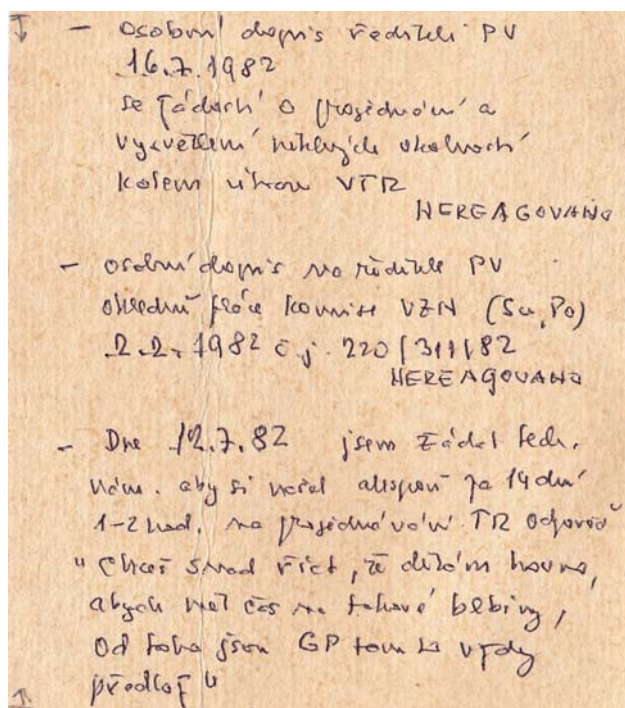 - osobní dopis řediteli PV
16.7.1982
se žádostí o projednání a
vysvětlení některých okolností
kolem úkolu VTR
NEREAGOVÁNO
- osobní dopis na ředitele PV
ohledně práce komise VZN (So, Po)
2.2.1982 č.j. 220/311/82
NEREAGOVÁNO
- Dne 12.7.82 jsem žádal tech.
nám. aby si našel alespoň za 14 dní
1-2 hod. na projednávání TR odpověď
"Chceš snad říct, že dělám hovno,
abych měl čas na takové blbiny,
Od toho jsou GP tam to vždy
předlož"